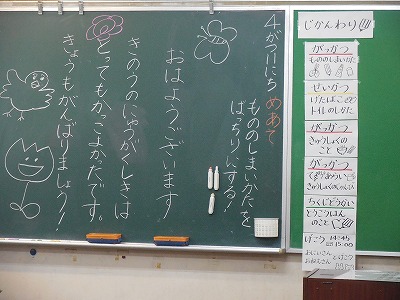 4がつ11にち
めあて
もののしまいかたを
ばっちりにする！
おはようございます！
きのうのにゅうがくしきは
とってもかっこよかたです。
きょうもがんばりましょう！
じかんわり
がっかつ
もののしまいかた
せいかつ
げたばこ
トイレのしかた
がっかつ
きゅうしょくの
こと
がっかつ
きゅうしょくのじゅんび
とうこうはん
のこと
げこう 14:45
15:00